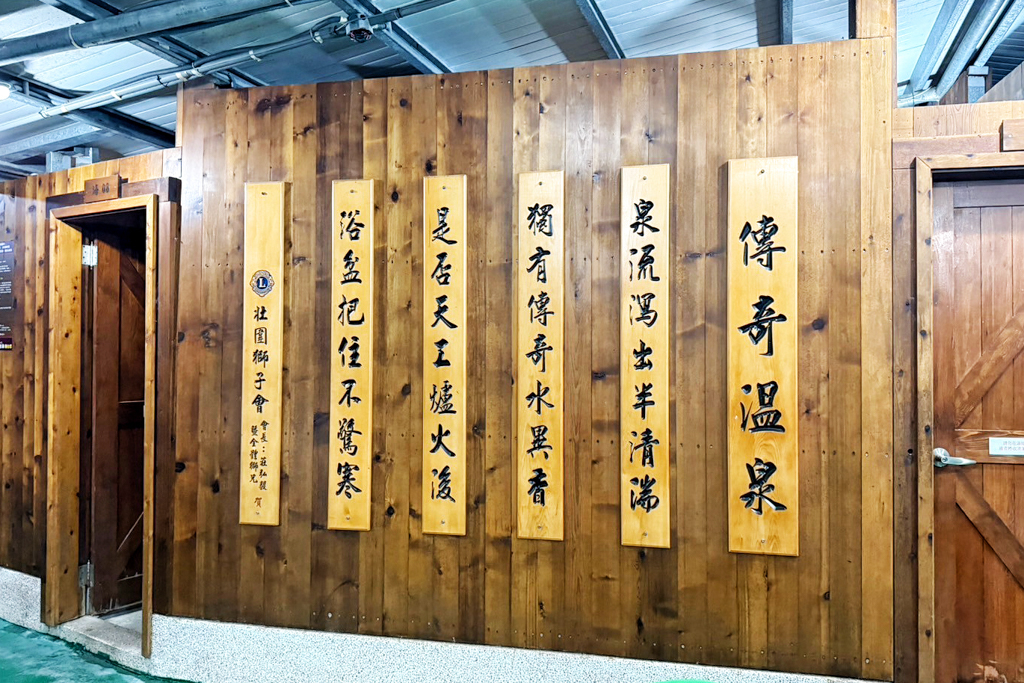 傳奇温泉
泉流瀉出半清湍
獨有傳奇水異香
是否天工爐火後
浴盆把住不驚寒
L
壯圍獅子會
會長·莊弘毅
暨全體獅兄
賀